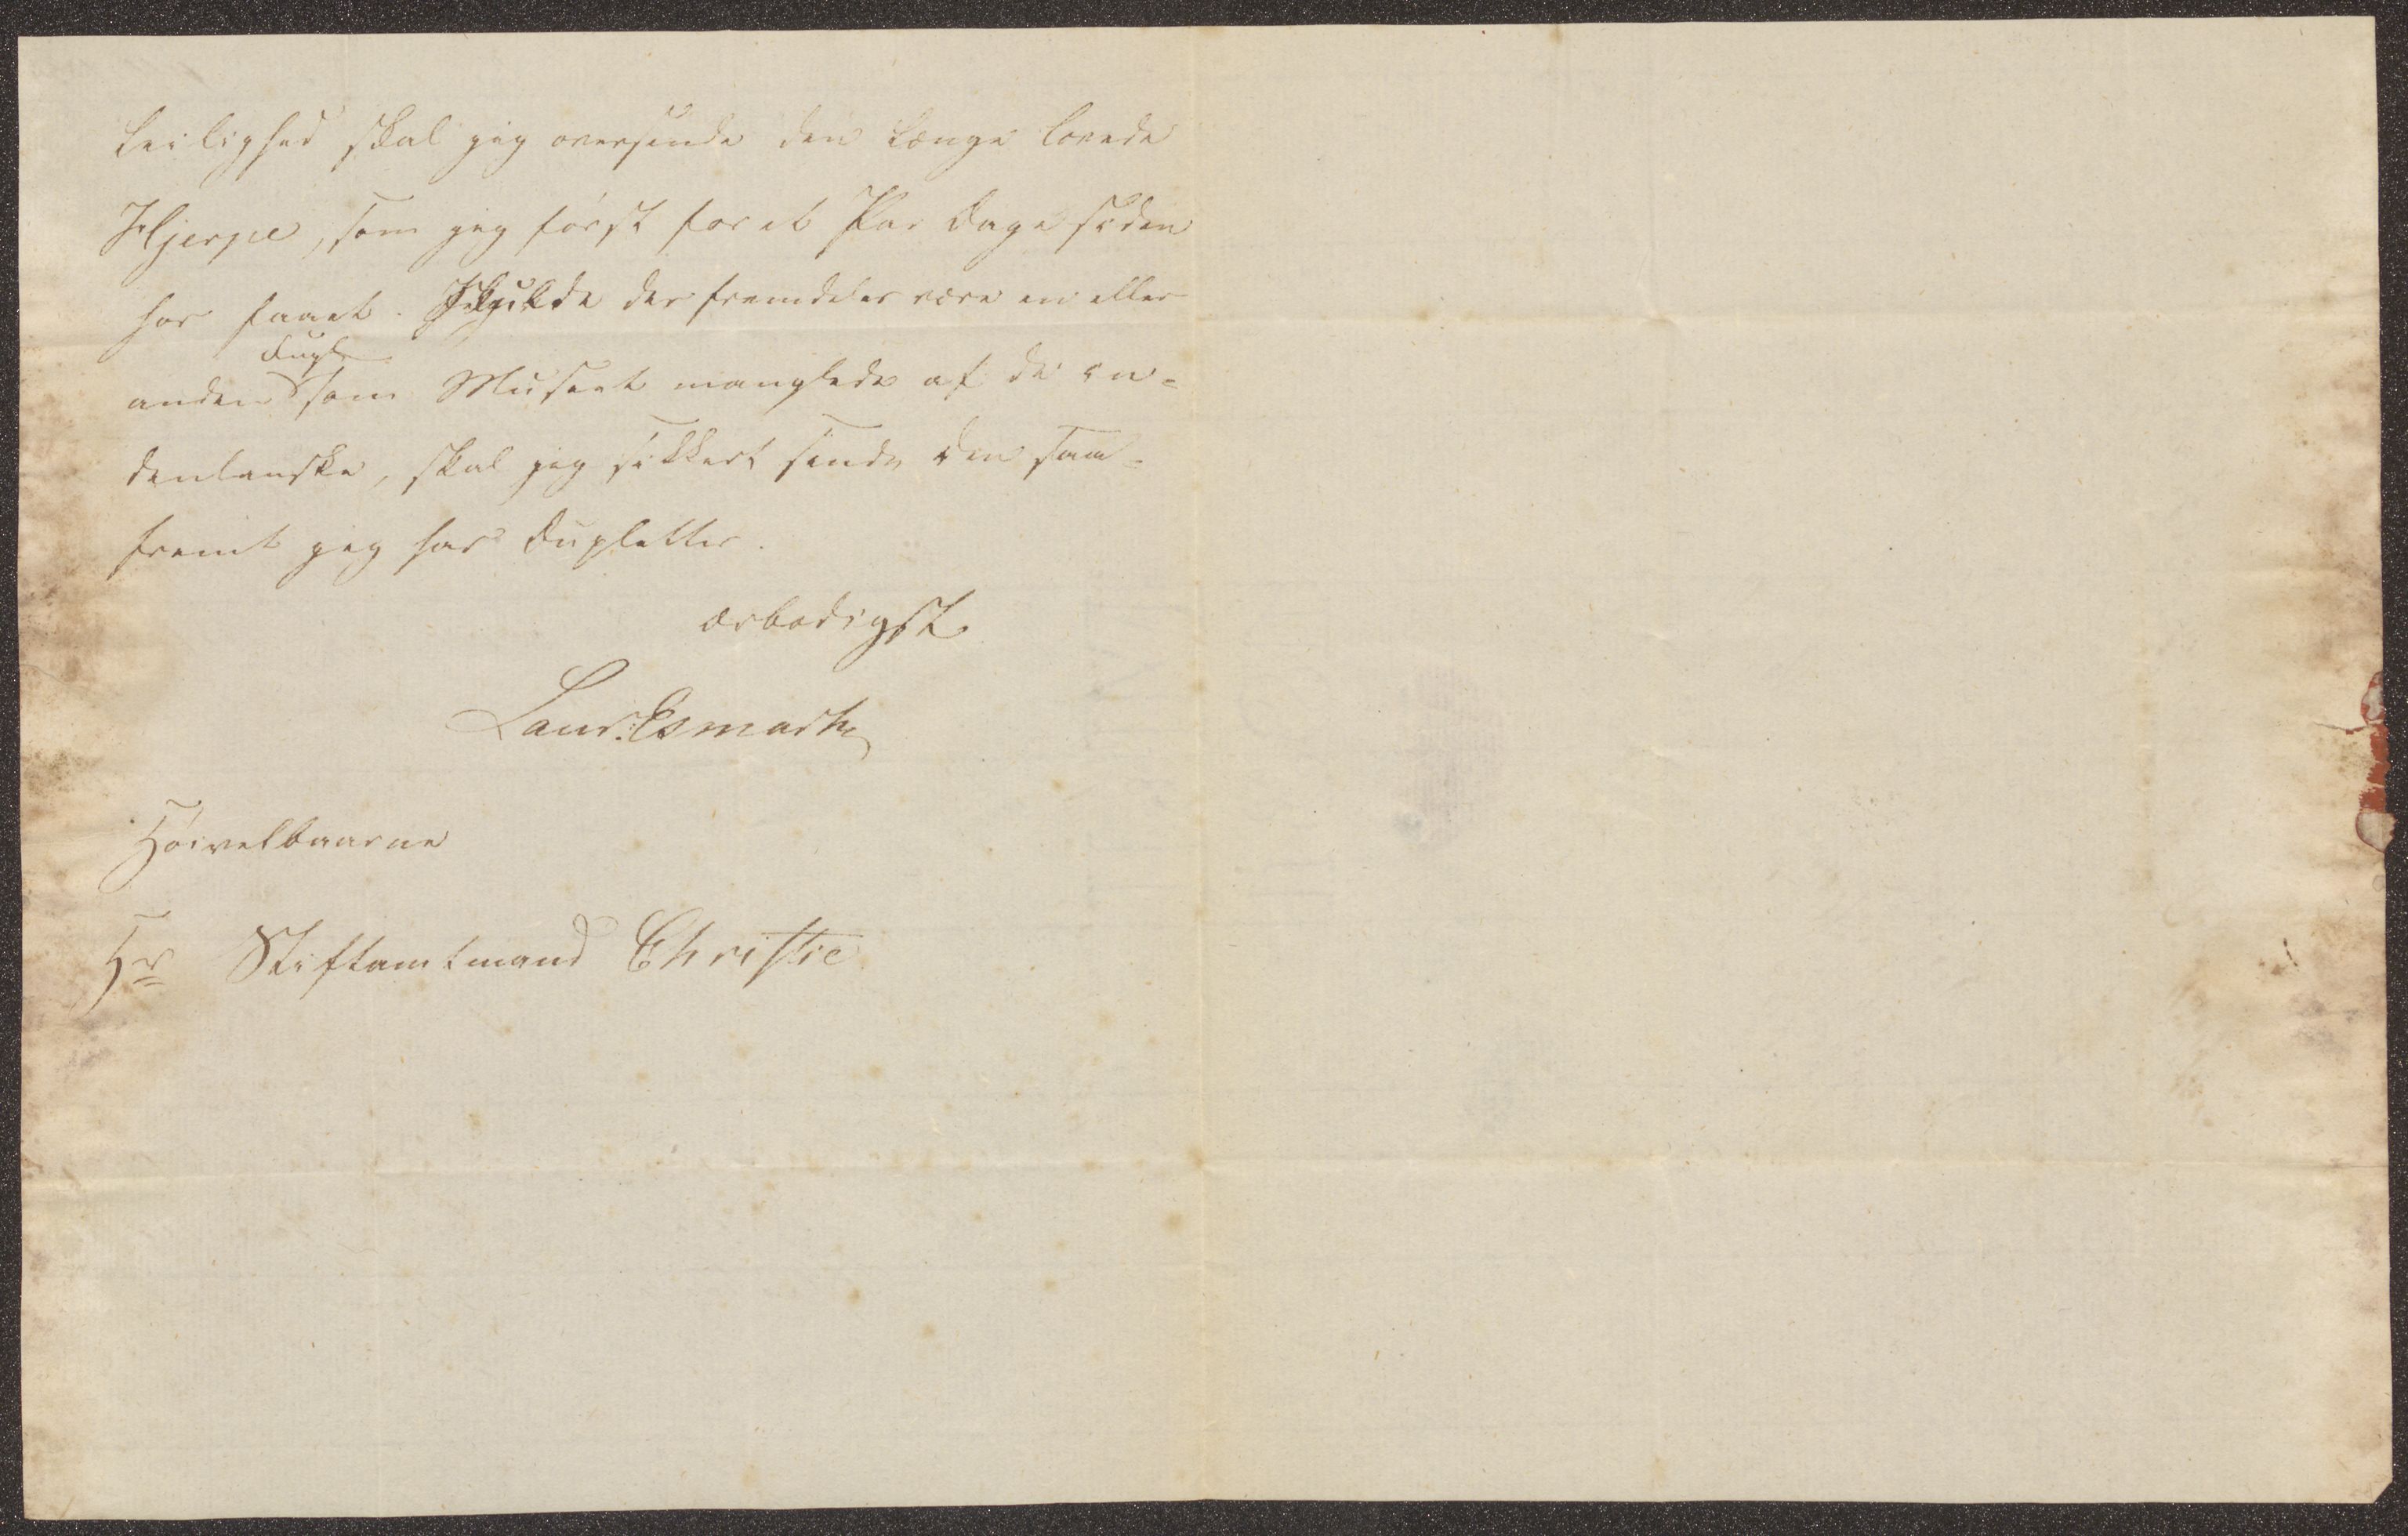 Leilighed skal jeg oversende den længe lovede
Hjerpe, som jeg først for et Par Dage siden
har faaet. Skulde der fremdeles være en eller
Fugl
anden som Museet manglede af de in-
denlanske, skal jeg sikkert sende den saa-
fremt jeg har Dupletter.
ærbødigst
Laur. Esmark
Høivelbaarne
Hr Stiftamtmand Christie